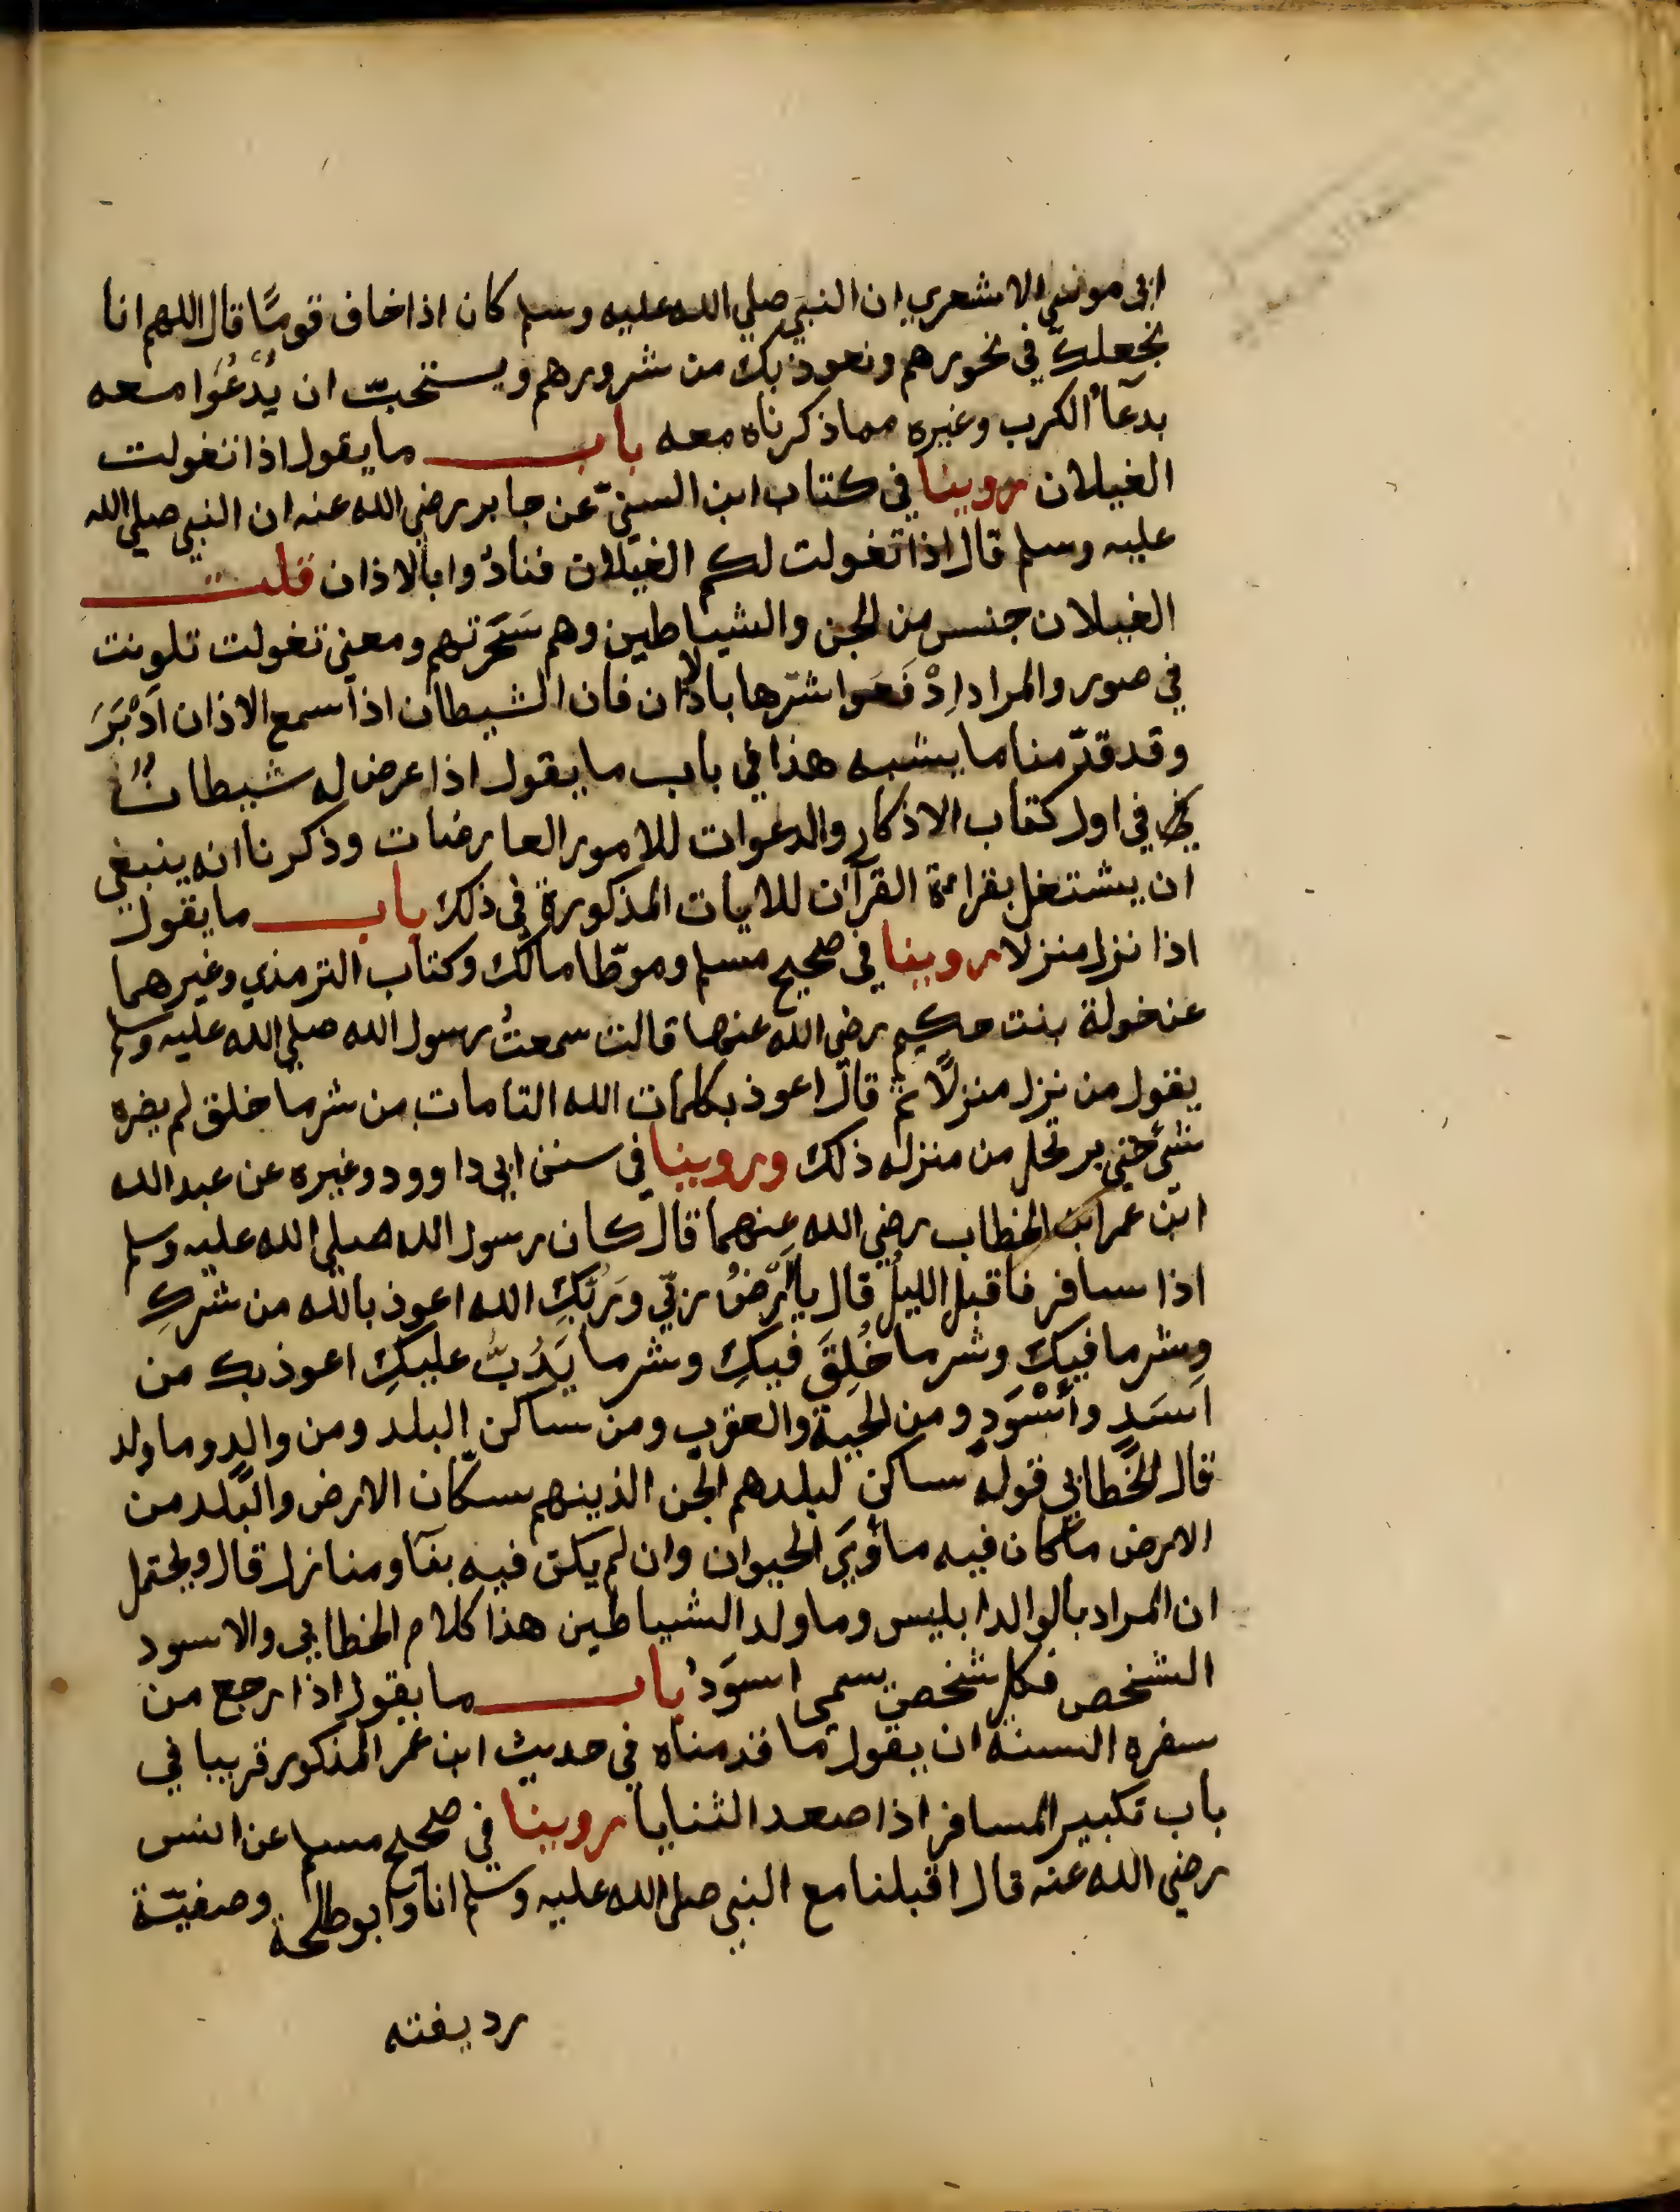 ابي موسى الاشعري ان النبي صلي الله عليه وسلم كان اذا خاف قومًا قال اللهم انا
نجعلك في نحورهم ونعوذ بك من شرورهم ويستحبّ ان يُدْعُوَا معه
بدعآء الكرب وغيره مما ذكرناه معه باب ما يقول اذا تغولت
الغيلان روينا في كتاب ابن السنيّ عن جابر رضي الله عنه ان النبي صلي الله
عليه وسلم قال اذا تغولت لكم الغيلان فنادُوا بالاذان قلت
الغيلان جنس من الجن والشياطين وهم سَحَرَتهم ومعني تغولت تلونت
في صور والمراد اِدْفَعوا شرّها بالاذان فان الشيطان اذا سمع الاذان اَدْبَرَ
وقد قدّمنا ما يشبه هذا في باب ما يقول اذا عرض له شيطانٌ
في اول كتاب الاذكار والدعوات للامور العارضات وذكرنا انه ينبغي
ان يشتغل بقراءة القرآن للايات المذكورة في ذلك باب ما يقول
اذا نزل منزلا روينا في صحيح مسلم وموطّا مالك وكتاب الترمذي وغيرهما
عن خولة بنت حكيم رضي الله عنها قالت سمعتُ رسول الله صلي الله عليه وسلم
يقول من نزل منزلًا ثم قال اعوذ بكلمات الله التامات من شر ما خلق لم يضره
شئ حتي يرتحل من منزله ذلك وروينا في سنن ابي داوود وغيره عن عبد الله
ابن عمر ابن الخطاب رضي الله عنهما قال كان رسول الله صلي الله عليه وسلم
اذا سافر فاقبل الليلُ قال يا اَرضُ ربّي ورَبُّكِ الله اعوذ بالله من شركِ
وشر ما فيكِ وشر ما خُلِقَ فيكِ وشر ما يَدُبُّ عليكِ اعوذ بك من
اَسَدٍ وأَسْوَدٍ ومن الحية والعقرب ومن ساكن البلد ومن والدٍ وما ولد
قال الخَطابي قوله ساكن لبلدهم الجن الذينهم سكّان الارض والبَلد من
الارض ما كان فيه مأوَي الحيوان وان لم يكن فيه بنآ ومنازل قال ويحتمل
ان المراد بالوالد ابليس وما ولد الشياطين هذا كلام الخطابي والاسود
الشخص فكل شخص يسمى اسوَدُ باب ما يقول اذا رجع من
سفره السنة ان يقول ما قدمناه في حديث ابن عمر المذكور قريبا في
باب تكبير المسافر اذا صعد الثنايا روينا في صحيح مسلم عن انس
رضي الله عنه قال اقبلنا مع النبي صلي الله عليه وسلم انا وابو طلحة وصفيّة
رديفته